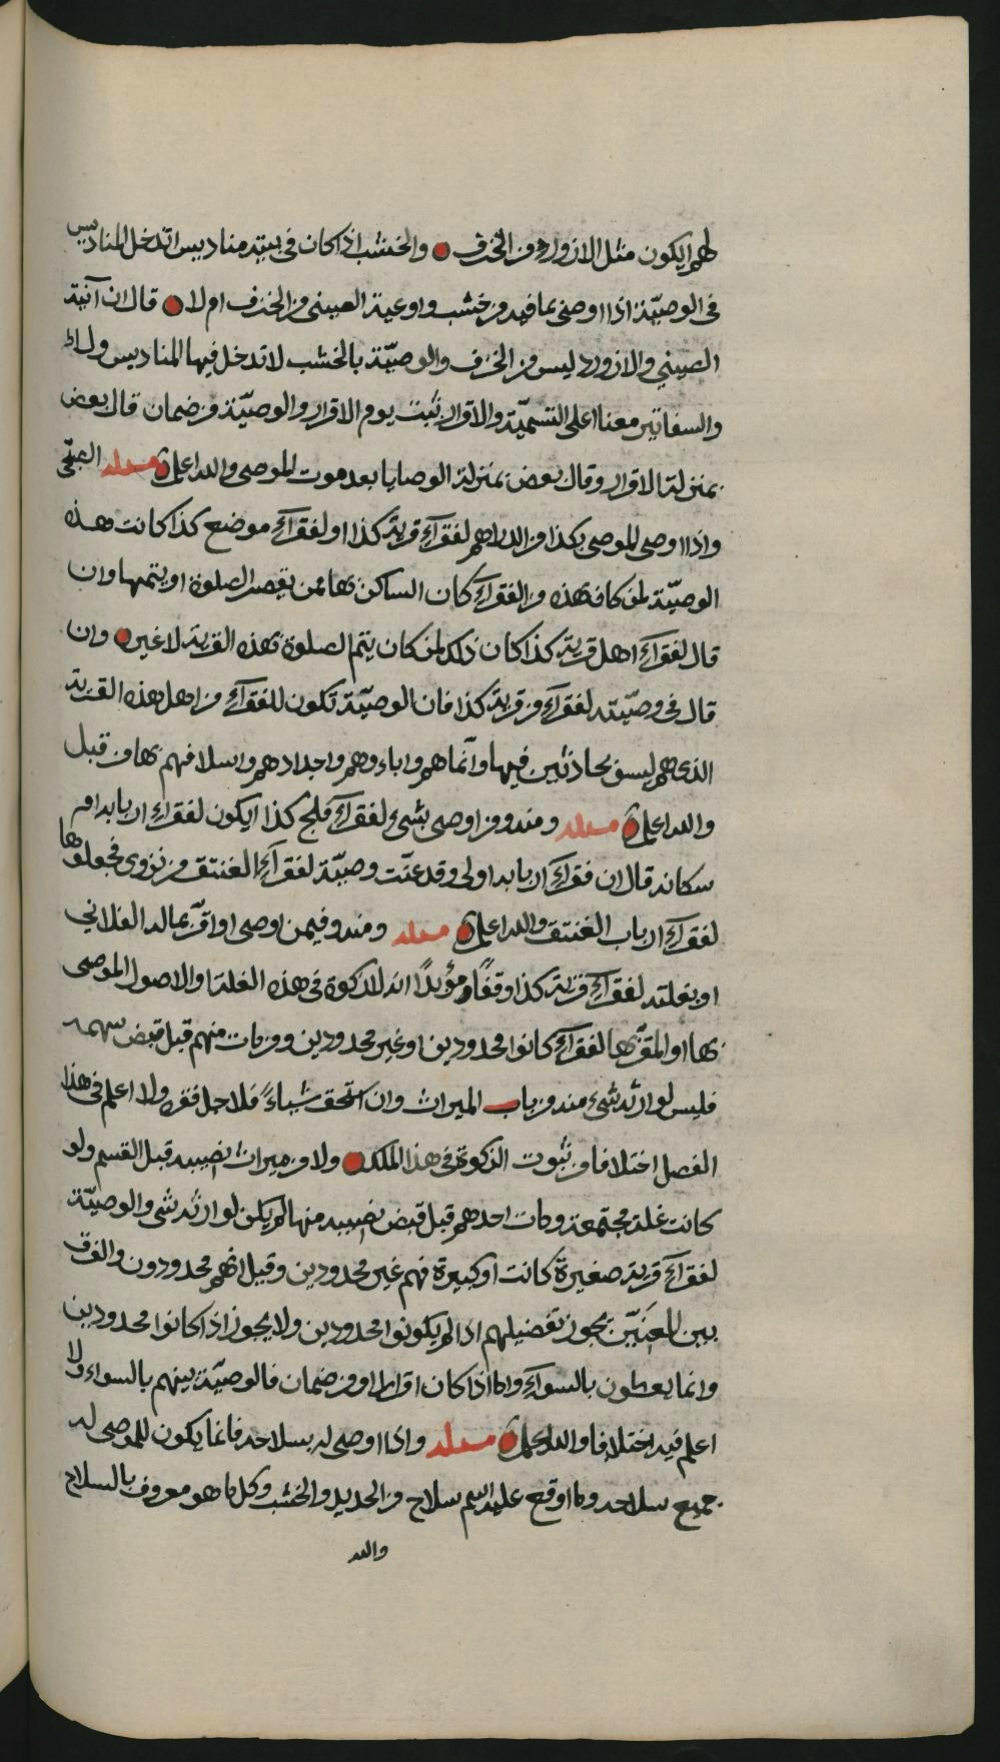 لهم ايكون مثل الازورد من الخزف والخشب اذا كان في بيته مناديس اتدخل المناديس
في الوصيّة اذا اوصى بما فيه من خشب واوعية الصيني من الخزف ام لا قال ان آنية
الصيني والازورد ليس من الخزف والوصيّة بالخشب لا تدخل فيها المناديس ولا
والسفاتير معنا على التسميّة والاقرار ثبت يوم الاقرار والوصيّة من ضمان قال بعض
بمنزلة الاقرار وقال بعض بمنزلة الوصايا بعد موت الموصي والله اعلم مسئله
واذا اوصى الموصي بكذا من الدراهم لفقرآء قرية كذا او لفقرآء موضع كذا كانت هذه
الوصيّة لمن كان هذه من الفقرآء كان الساكن بها ممن يقصر الصلوة او يتمها وان
قال لفقرآء اهل قرية كذا كان ذلك لمن كان يتم الصلوة بهذه القرية لا غير وان
قال في وصيّته لفقرآء من قرية كذا فان الوصيّة تكون للفقرآء من اهل هذه القرية
الذي هم ليسو بحادثين فيها وانّما هم واباءوهم واجدادهم واسلافهم بها من قبل
والله اعلم مسئله ومنه ومن اوصى بشيء لفقرآء فلج كذا ايكون لفقرآء اربابه ام
سكانه قال ان فقرآء اربابه اولى وقد عنّت وصيّة لفقرآء الغنتق من نزوى فجعلوها
لفقرآء ارباب الغنتق والله اعلم مسئله ومنه وفيمن اوصى او اقرّ بماله الفلاني
او بغلته لفقرآء قرية كذا وقفًا مؤبدًا انه لا زكوة في هذه الغلة والاصول الموصى
بها او المقرّ بها لفقرآء كانوا محدودين او غير محدودين ومن مات منهم قبل قبض سهمه
فليس لوارثه شيء منه من باب الميراث وان استحق شياءً فلاجل فقره ولا اعلم في هذا
الفصل اختلافا من ثبوت الزكوة في هذا الملك ولا من ميراث نصيبه قبل القسم ولو
كانت غلة مجتمعة ومات احدهم قبل قبض نصيبه منها لم يكن لوارثه شي والوصيّة
لفقرآء قرية صغيرة كانت او كبيرة فهم غير محدودين وقيل انهم محدودون والفرق
بين المعنيَيّن يجوز تفضيلهم اذا لم يكونوا محدودين ولا يجوز اذا كانوا محدودين
وانما يعطون بالسوآء واما اذا كان اقرارا او من ضمان فالوصيّة بينهم بالسواء ولا
اعلم فيه اختلافا والله اعلم مسئله واذا اوصى له بسلاحه فانما يكون للموصى له
جميع سلاحه وما وقع عليه اسم سلاح من الحديد والخشب وكل ما هو معروف بالسلاح
والله